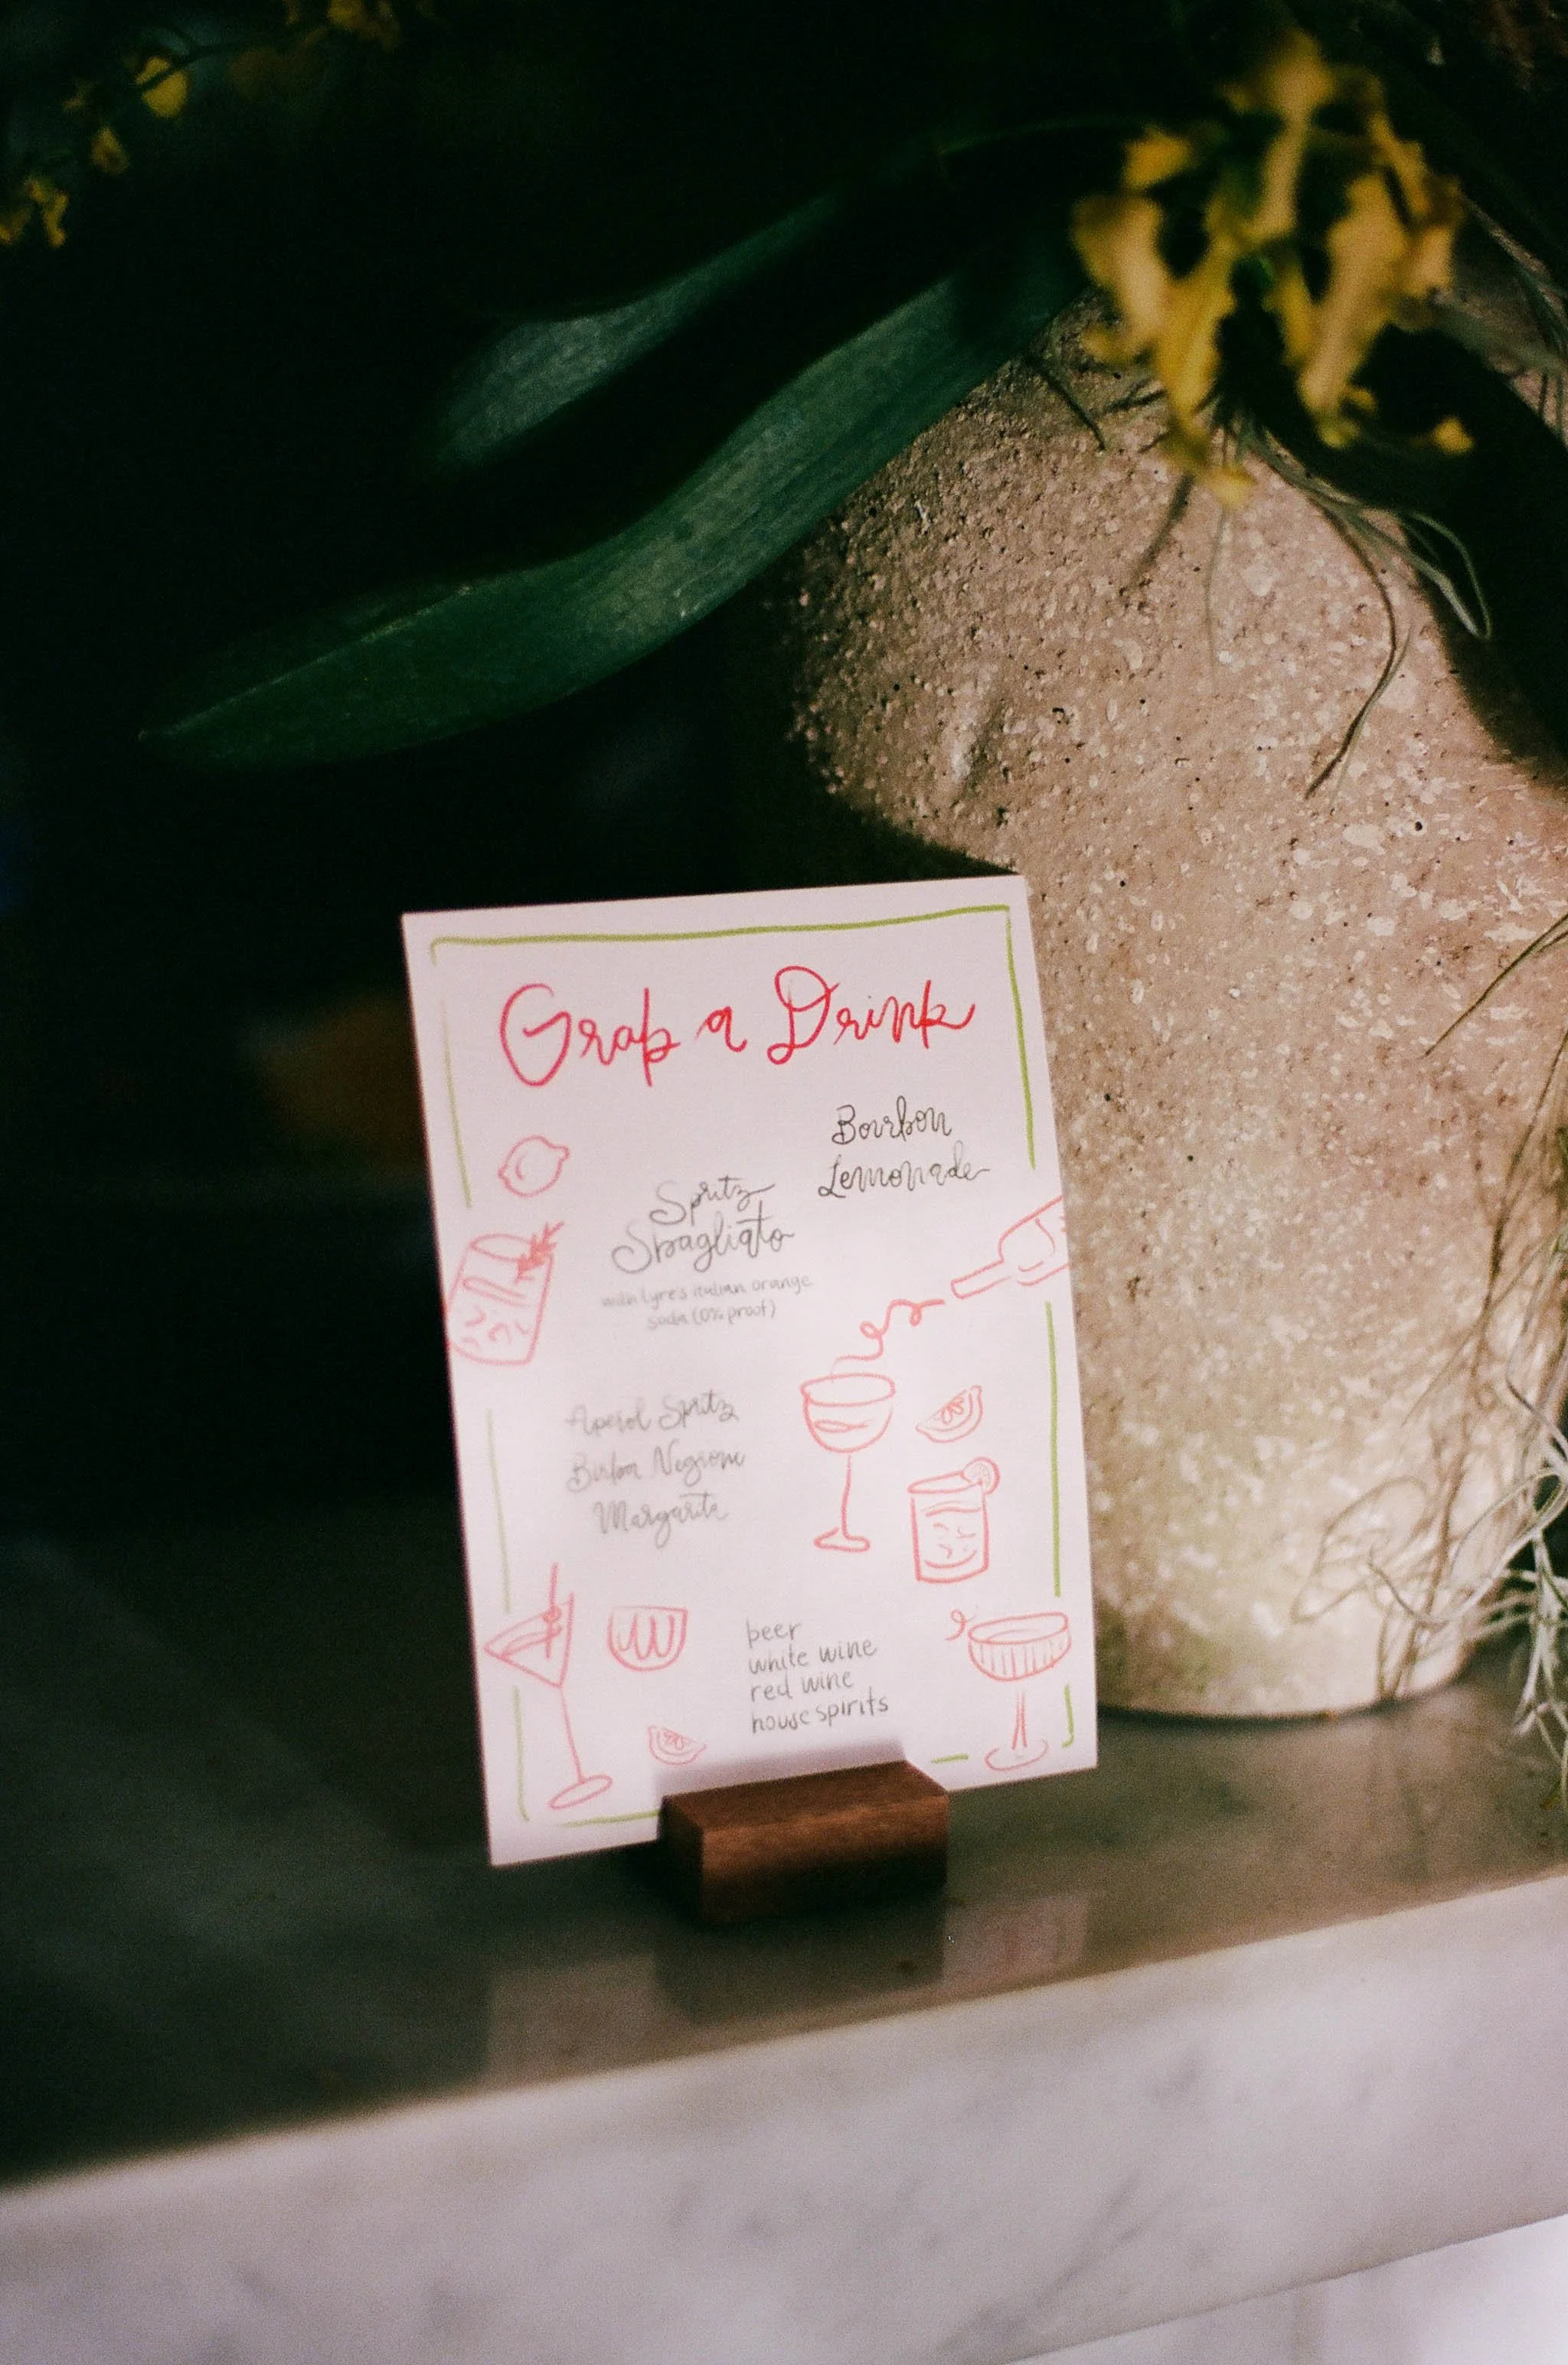 Grab a Drink
Bourbon
Lemonade
Spritz
Sbagliato
with lyre's italian orange
soda (0% proof)
Aperol Spritz
Birba Negroni
Margarita
beer
white wine
red wine
house spirits